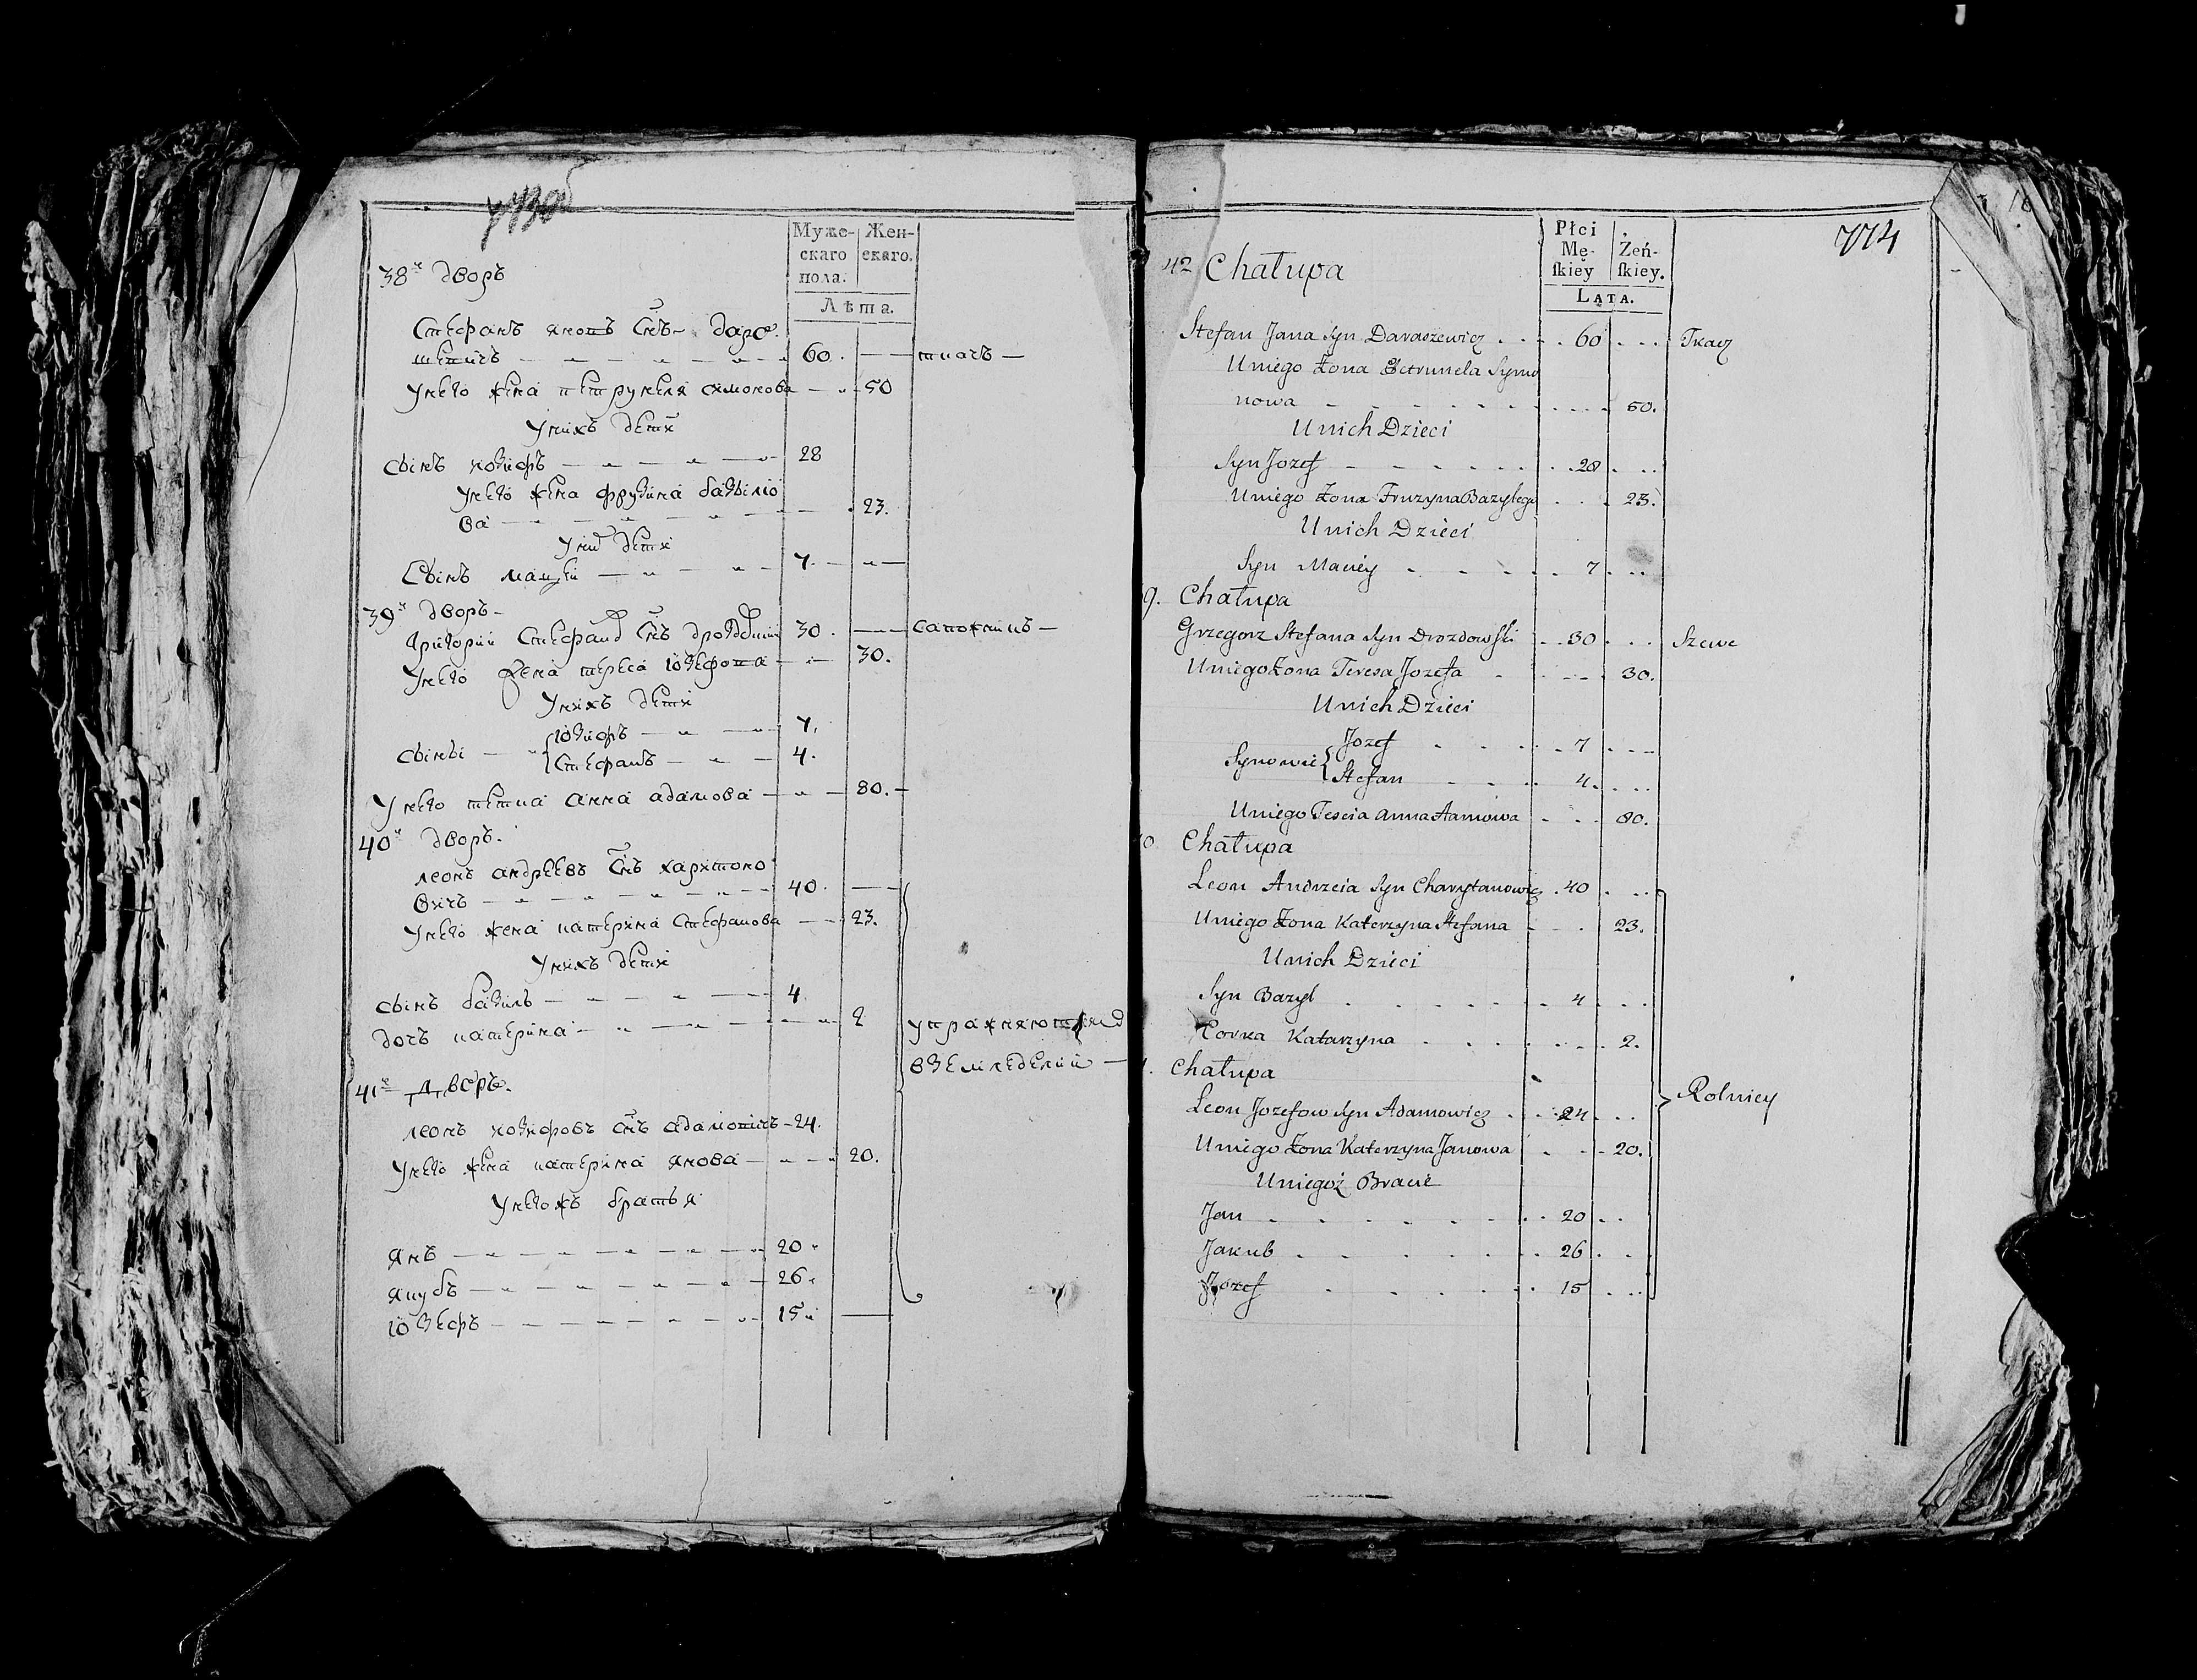 Муже-
скаго
пола.
Жен-
скаго.
Лѣта.
38й дворъ
Стефанъ яновъ снъ даро
шевичъ 60. ткачъ
У него жена петрунеля симонова 50
У нихъ дети
сынъ иозифъ 28
У него жена фрузина базылио
ва 23.
У них дети
Сынъ мацей 7.
39й дворъ
григорий Стефанов снъ дрозdовский 30. сапожникъ
У него жена тереса юзефова 30.
У нихъ дети
юзифъ 7.
сыны
Стефанъ 4.
У него тетка анна адамова 80.
40й дворъ.
леонъ андреевъ снъ харитоно
вичъ 40.
У него жена катерина Стефанова 23.
У нихъ дети
сынъ базиль 4
дочъ катерина 2
упражняются
в земледелии
41й дворъ.
леонъ иозифовъ снъ адамовичъ 24.
У него жена катерина янова 20.
У негожъ братья
янъ 20
якубъ 26.
юзефъ 15
774
Płci
Mę-
ſkiey
Żeń-
ſkiey.
Lata.
42 Chałupa
Stefan Jana Syn Daraszewicz 60 Tkacz
U niego Żona Petrunela Symo
nowa 50.
U nich Dzieci
Syn Jozef 28
U niego Żona Fruzyna Bazylego 23.
U nich Dzieci
Syn Maciey 7
9. Chałupa
Grzegorz Stefana Syn Drozdowski 30 Szewc
U niego Żona Teresa Jozefa 30.
U nich Dzieci
Jozef 7
Synowie
Stefan 4.
U niego Teścia Anna Aamowa 80.
0 Chałupa
Leon Andrzeia Syn Charytanowicz 40
U niego Żona Katerzyna Stefana 23.
U nich Dzieci
Syn Bazyl 4
Corka Katarzyna 2.
Chałupa
Rolnicy
Leon Jozefow Syn Adamowicz 24
U niego Żona Katerzyna Janowa 20.
U niegoż Bracie
Jan 20
Jakub 26
Jozef 15